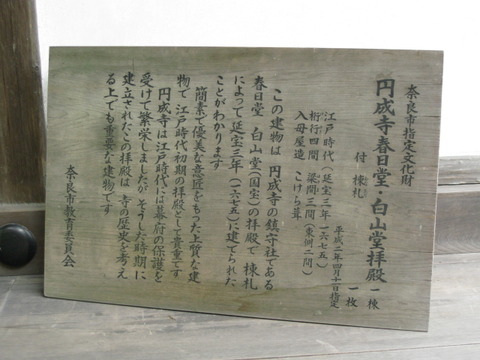 奈良市指定文化財
円成寺春日堂・白山堂拝殿 一棟
付 棟札 一枚
平成二年四月十日指定
江戸時代(延宝三年 一六七五)
桁行四間 梁間三間(東側二間)
入母屋造 こけら葺
この建物は 円成寺の鎮守社である
春日堂 白山堂(国宝)の拝殿で 棟札
によって延宝三年(一六七五)に建てられた
ことがわかります
簡素で優美な意匠をもった上質な建
物で 江戸時代初期の拝殿として貴重です
円成寺は江戸時代には幕府の保護を
受けて繁栄しましたが そうした時期に
建立されたこの拝殿は 寺の歴史を考え
る上でも重要な建物です
奈良市教育委員会